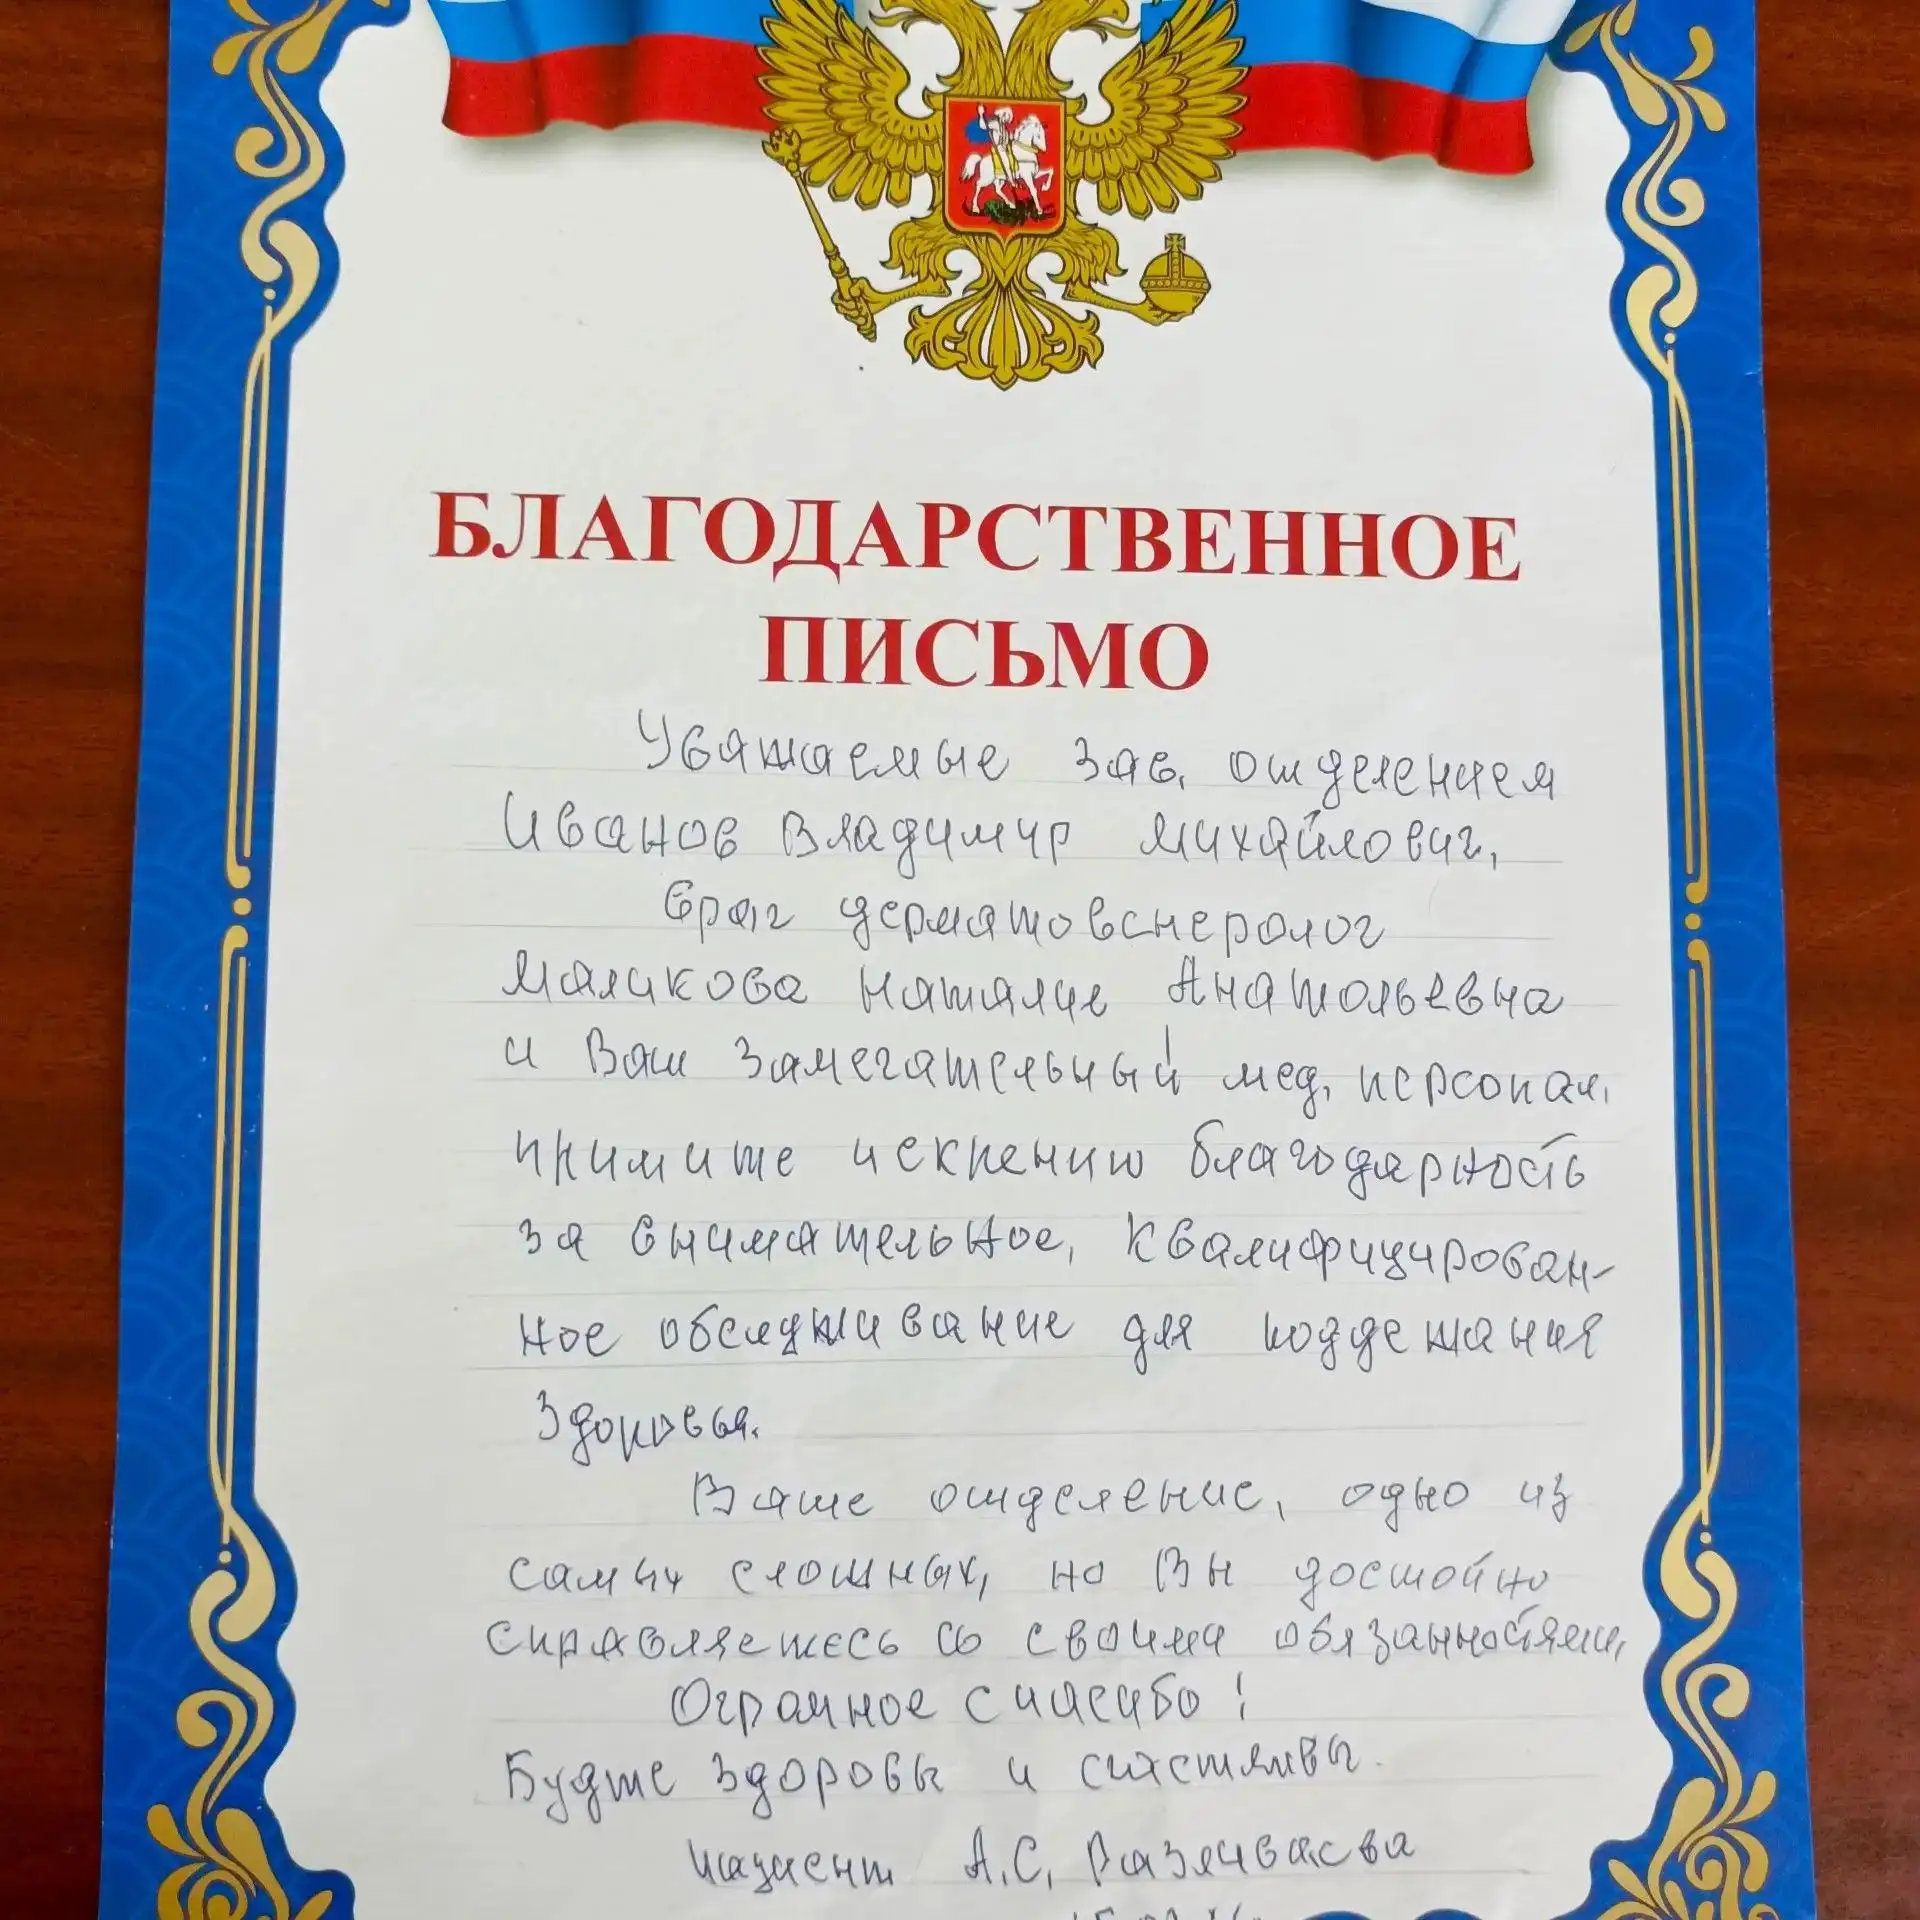 БЛАГОДАРСТВЕННОЕ
ПИСЬМО
Уважаемые зав. отделением
Иванов Владимир Михайлович,
врач дерматовенеролог
Маликова Наталие Анатольевна
и Ваш замечательный мед. персонал,
примите искрению благодарность
за внимательное, квалифицирован-
ное обслуживание для поддежания
здоровья.
Ваше отделение, одно из
самых сложных, но Вы достойно
справляетесь со своими обязанностями,
Огромное спасибо!
Будте здоровы и счастливы.
пациент А.С.